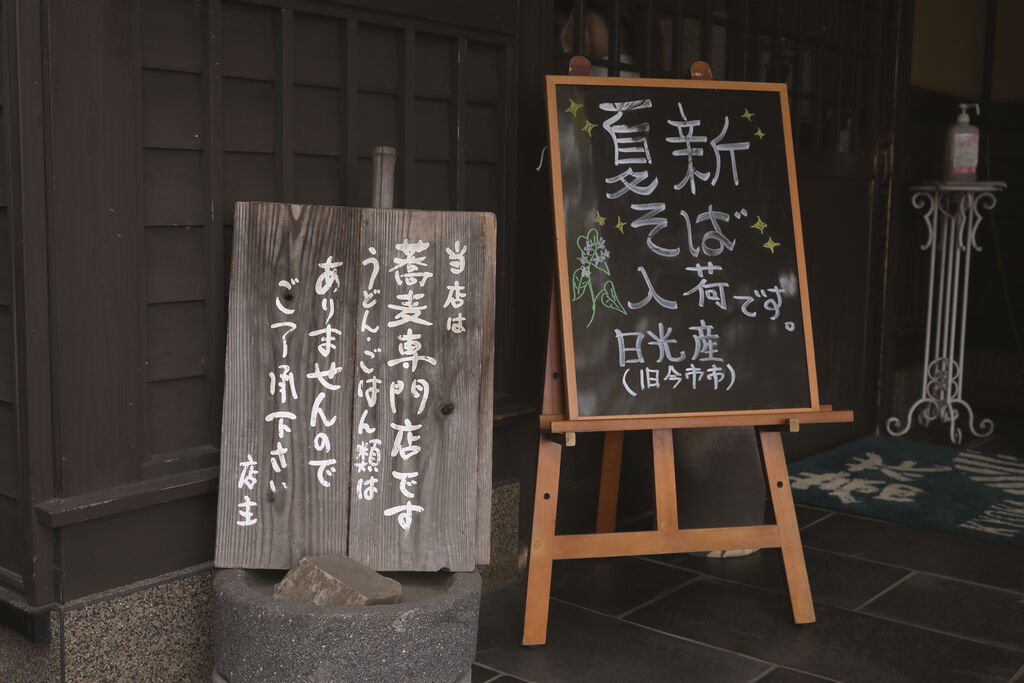 当店は
蕎麦専門店です
うどん・ごはん類は
ありませんので
ごアー承下さい
店主
夏新
そば
入荷です。
日光産
(旧今市市)